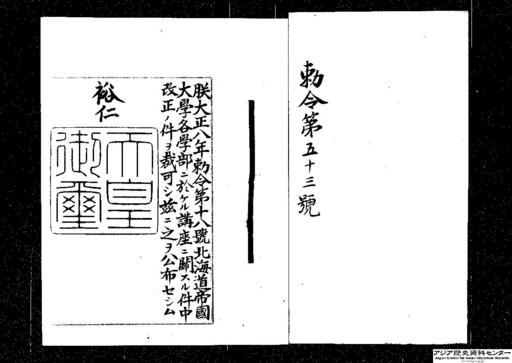 勅令第五十三號
朕大正八年勅令第十八號北海道帝國
大學各學部ニ於ケル講座ニ關スル件中
改正ノ件ヲ裁可シ茲ニ之ヲ公布セシム
裕仁
天皇
御璽
アジア歴史資料センター
Japan Center for Asian Historical Records